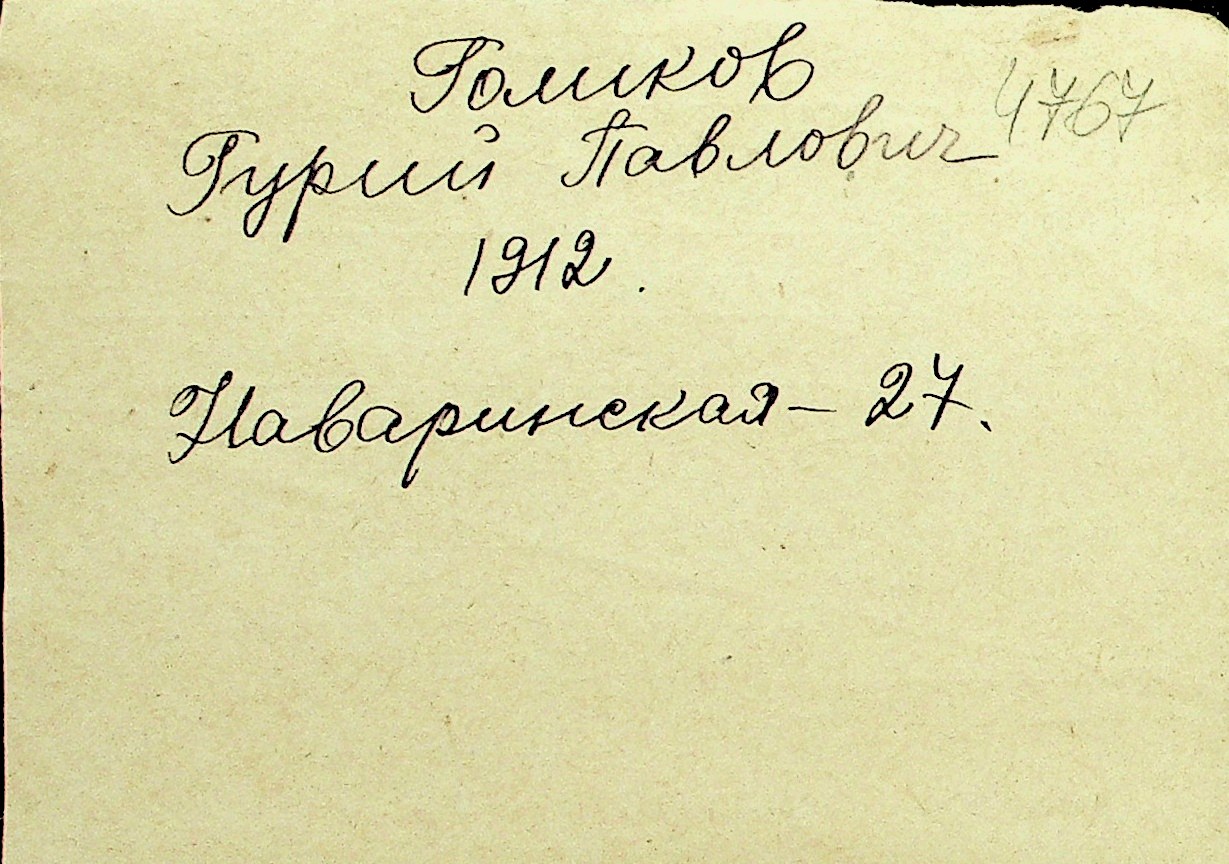 Голиков
Гурий Павлович 4767
1912.
Наваринская – 27.